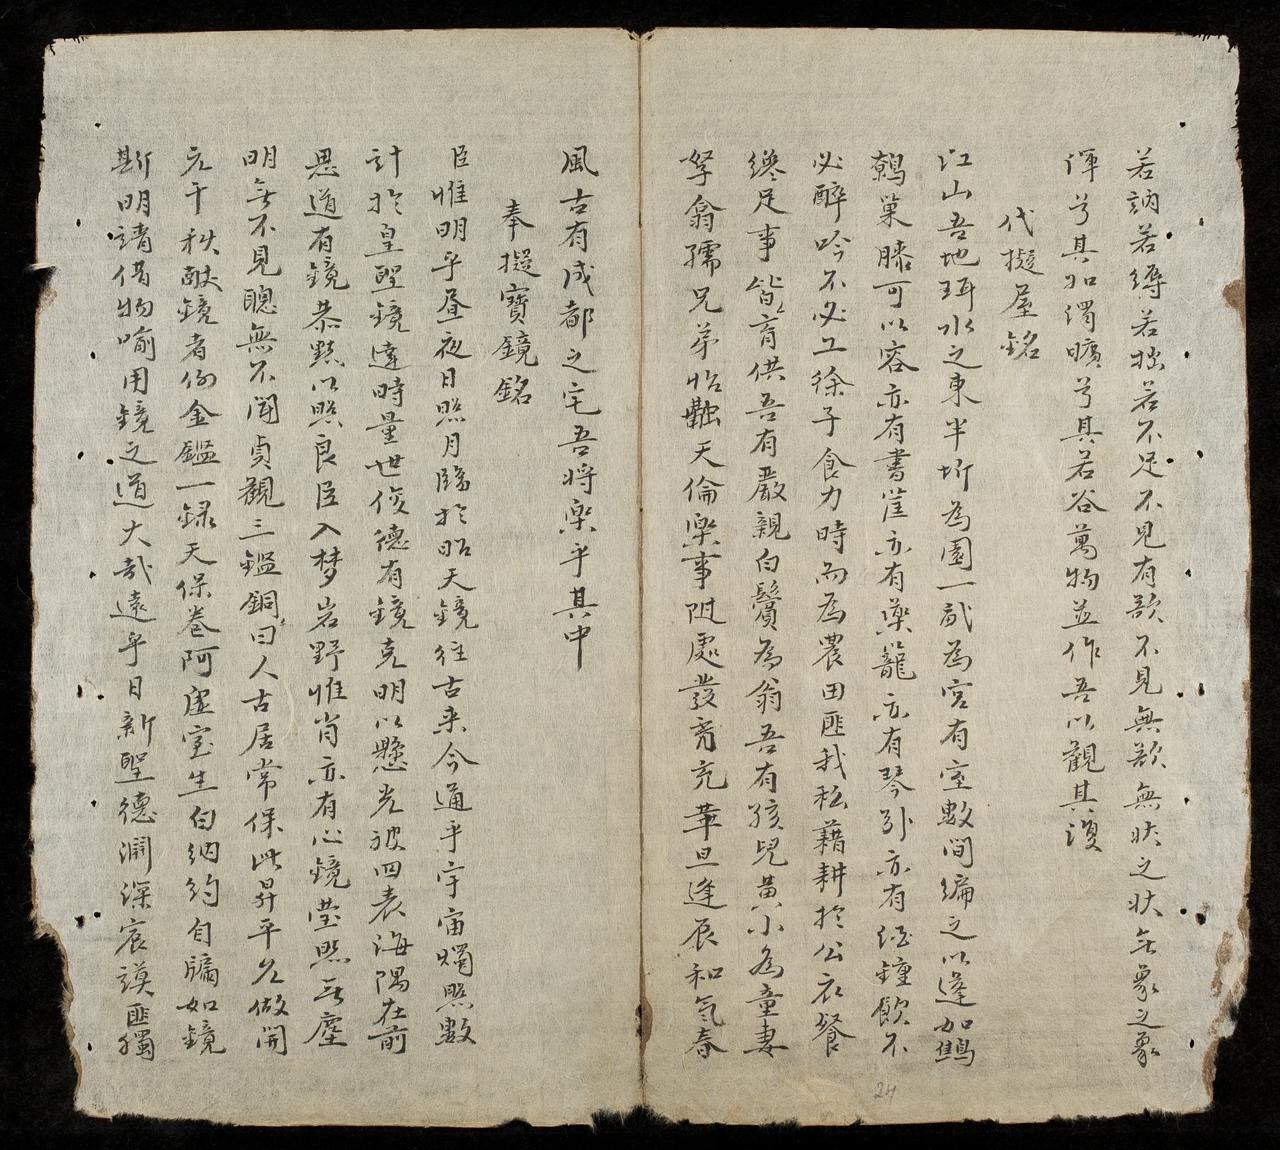 若訥若辱若拙若不足不見有欲不見無欲無状之状無象之象
渾兮其如濁曠兮其若谷萬物並作吾以觀其復
代擬屋銘
江山吾地珥水之東半圻為園一畝為宮有室數間編之以蓬如鶴
鷯巢膝可以容亦有書在亦有藥籠亦有琴引亦有酒鍾飲不
必醉吟不必工徐子食力時而為農田匪我私藉耕於公衣餐
纔足事皆育供吾有嚴親白鬢為翁吾有孩兒黄小為童妻
孥翕孺兄弟怡融天倫樂事隨處發育充華旦逢辰和氣春
風古有成都之宅吾将樂乎其中
奉擬寶鏡銘
臣惟明乎昼夜日照月臨於昭天鏡往古来今通乎宇宙燭照數
計於皇聖鏡達時量世俊德有鏡克明以懸光被四表海隅在前
思道有鏡恭默以照良臣入梦岩野惟肖亦有心鏡瑩照無塵
明無不見聰無不聞貞觀三鑑銅曰人古居常保此昇平允做開
元千秋献鏡者例金鑑一録天保卷阿虚室生白納約自牖如鏡
斯明請借物喻用鏡之道大哉遠乎日新聖德淵深宸謨匪獨
24